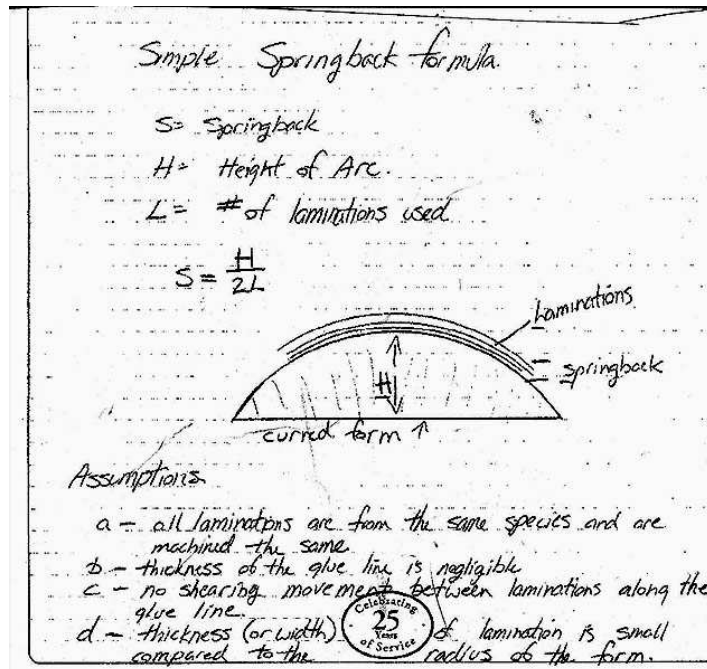 Simple Springback formula.
S= Springback
H= Height of Arc.
L= # of laminations used
S = H/2L
Laminations
springback
H
curved form ↑
Assumptions
a - all laminations are from the same species and are
machined the same
b - thickness of the glue line is negligible
c - no shearing movement between laminations along the
glue line.
d - thickness (or width) of lamination is small
compared to the radius of the form.
Celebrating
25
Years
of Service